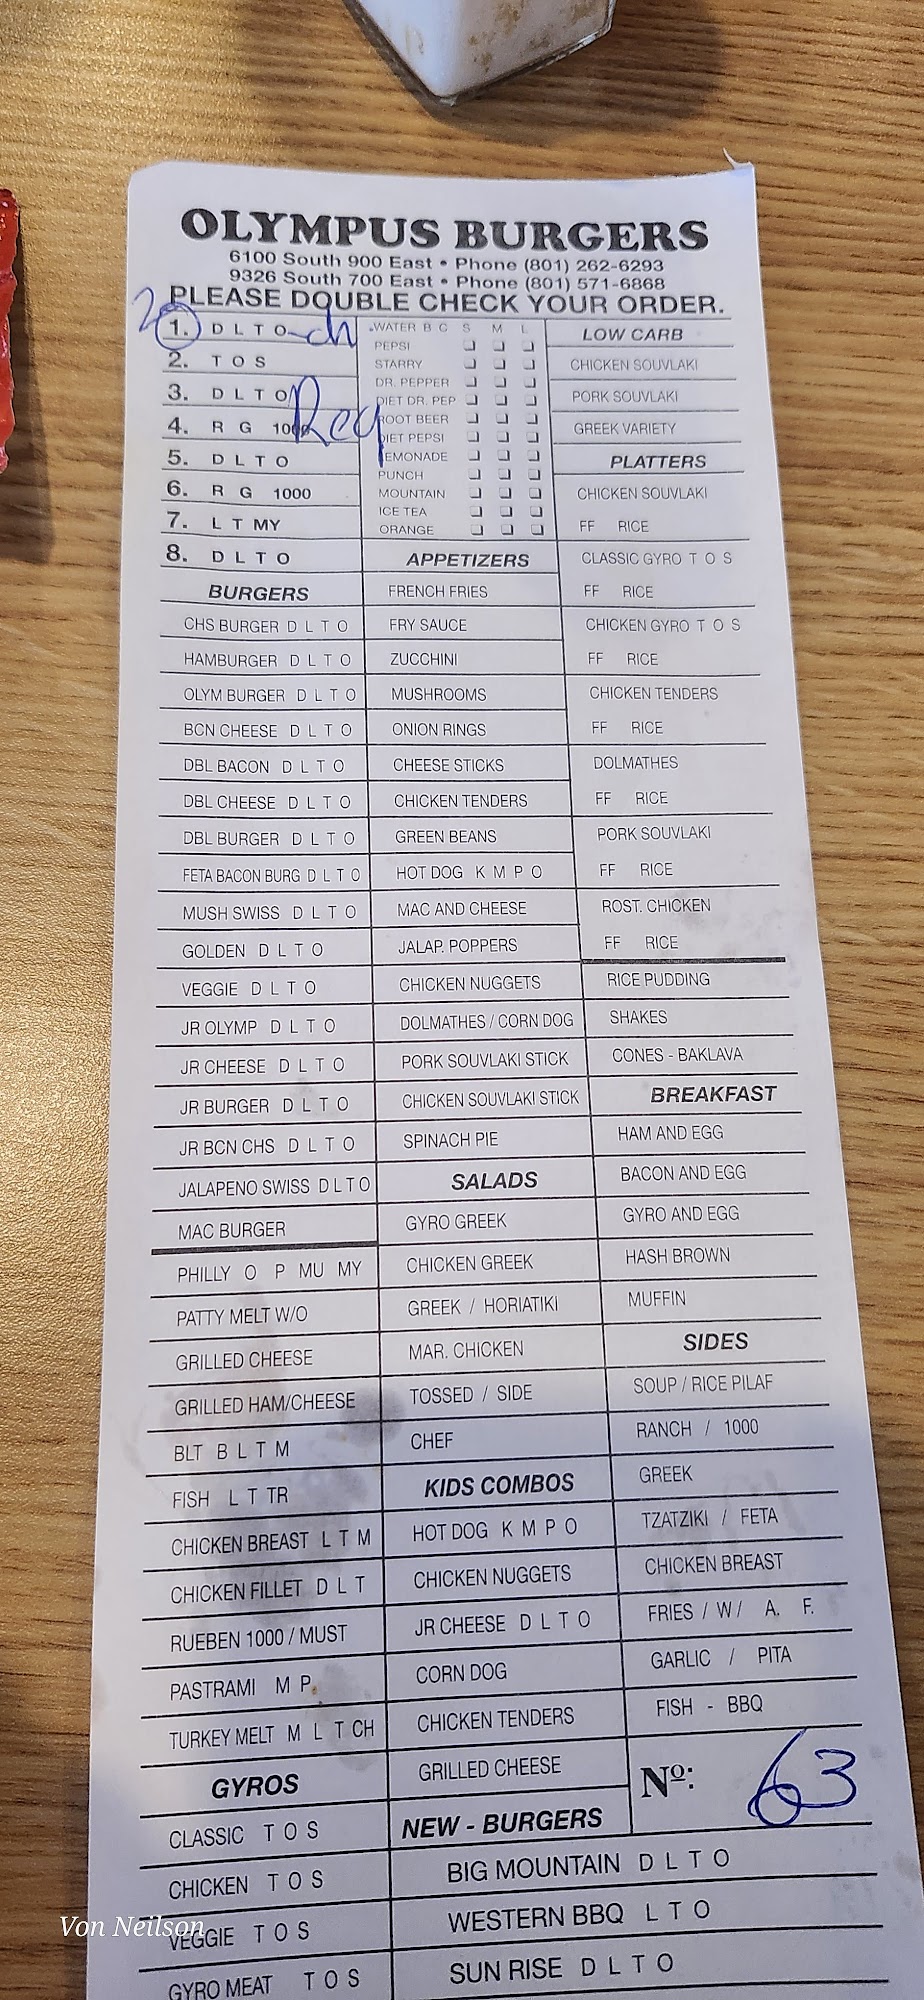 OLYMPUS BURGERS
6100 South 900 East • Phone (801) 262-6293
9326 South 700 East • Phone (801) 571-6868
PLEASE DOUBLE CHECK YOUR ORDER.
2
1. D L T O ch
2. T O S
3. D L T O
Reg
4. R G 1000
5. D L T O
6. R G 1000
7. L T MY
8. D L T O
BURGERS
CHS BURGER D L T O
HAMBURGER D L T O
OLYM BURGER D L T O
BCN CHEESE D L T O
DBL BACON D L T O
DBL CHEESE D L T O
DBL BURGER D L T O
FETA BACON BURG D L T O
MUSH SWISS D L T O
GOLDEN D L T O
VEGGIE D L T O
JR OLYMP D L T O
JR CHEESE D L T O
JR BURGER D L T O
JR BCN CHS D L T O
JALAPENO SWISS D L T O
MAC BURGER
PHILLY O P MU MY
PATTY MELT W/O
GRILLED CHEESE
GRILLED HAM/CHEESE
BLT B L T M
FISH L T TR
CHICKEN BREAST L T M
CHICKEN FILLET D L T
RUEBEN 1000 / MUST
PASTRAMI M P
TURKEY MELT M L T CH
GYROS
CLASSIC T O S
CHICKEN T O S
VEGGIE T O S
GYRO MEAT T O S
WATER B C S M L
PEPSI
STARRY
DR. PEPPER
DIET DR. PEP
ROOT BEER
DIET PEPSI
LEMONADE
PUNCH
MOUNTAIN
ICE TEA
ORANGE
APPETIZERS
FRENCH FRIES
FRY SAUCE
ZUCCHINI
MUSHROOMS
ONION RINGS
CHEESE STICKS
CHICKEN TENDERS
GREEN BEANS
HOT DOG K M P O
MAC AND CHEESE
JALAP. POPPERS
CHICKEN NUGGETS
DOLMATHES / CORN DOG
PORK SOUVLAKI STICK
CHICKEN SOUVLAKI STICK
SPINACH PIE
SALADS
GYRO GREEK
CHICKEN GREEK
GREEK / HORIATIKI
MAR. CHICKEN
TOSSED / SIDE
CHEF
KIDS COMBOS
HOT DOG K M P O
CHICKEN NUGGETS
JR CHEESE D L T O
CORN DOG
CHICKEN TENDERS
GRILLED CHEESE
NEW - BURGERS
BIG MOUNTAIN D L T O
WESTERN BBQ L T O
SUN RISE D L T O
LOW CARB
CHICKEN SOUVLAKI
PORK SOUVLAKI
GREEK VARIETY
PLATTERS
CHICKEN SOUVLAKI
FF RICE
CLASSIC GYRO T O S
FF RICE
CHICKEN GYRO T O S
FF RICE
CHICKEN TENDERS
FF RICE
DOLMATHES
FF RICE
PORK SOUVLAKI
FF RICE
ROST. CHICKEN
FF RICE
RICE PUDDING
SHAKES
CONES - BAKLAVA
BREAKFAST
HAM AND EGG
BACON AND EGG
GYRO AND EGG
HASH BROWN
MUFFIN
SIDES
SOUP / RICE PILAF
RANCH / 1000
GREEK
TZATZIKI / FETA
CHICKEN BREAST
FRIES / W / A. F.
GARLIC / PITA
FISH - BBQ
Nº: 63
Von Neilson